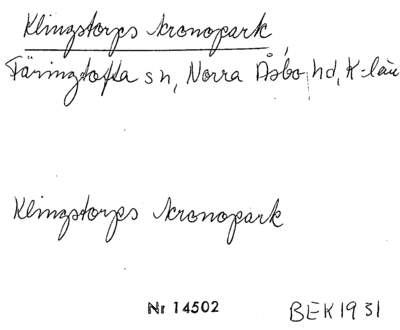 Klingstorps kronopark
Färingtofta sn, Norra Åsbo hd, K-län
Klingstorps kronopark
Nr 14502
BEK1931